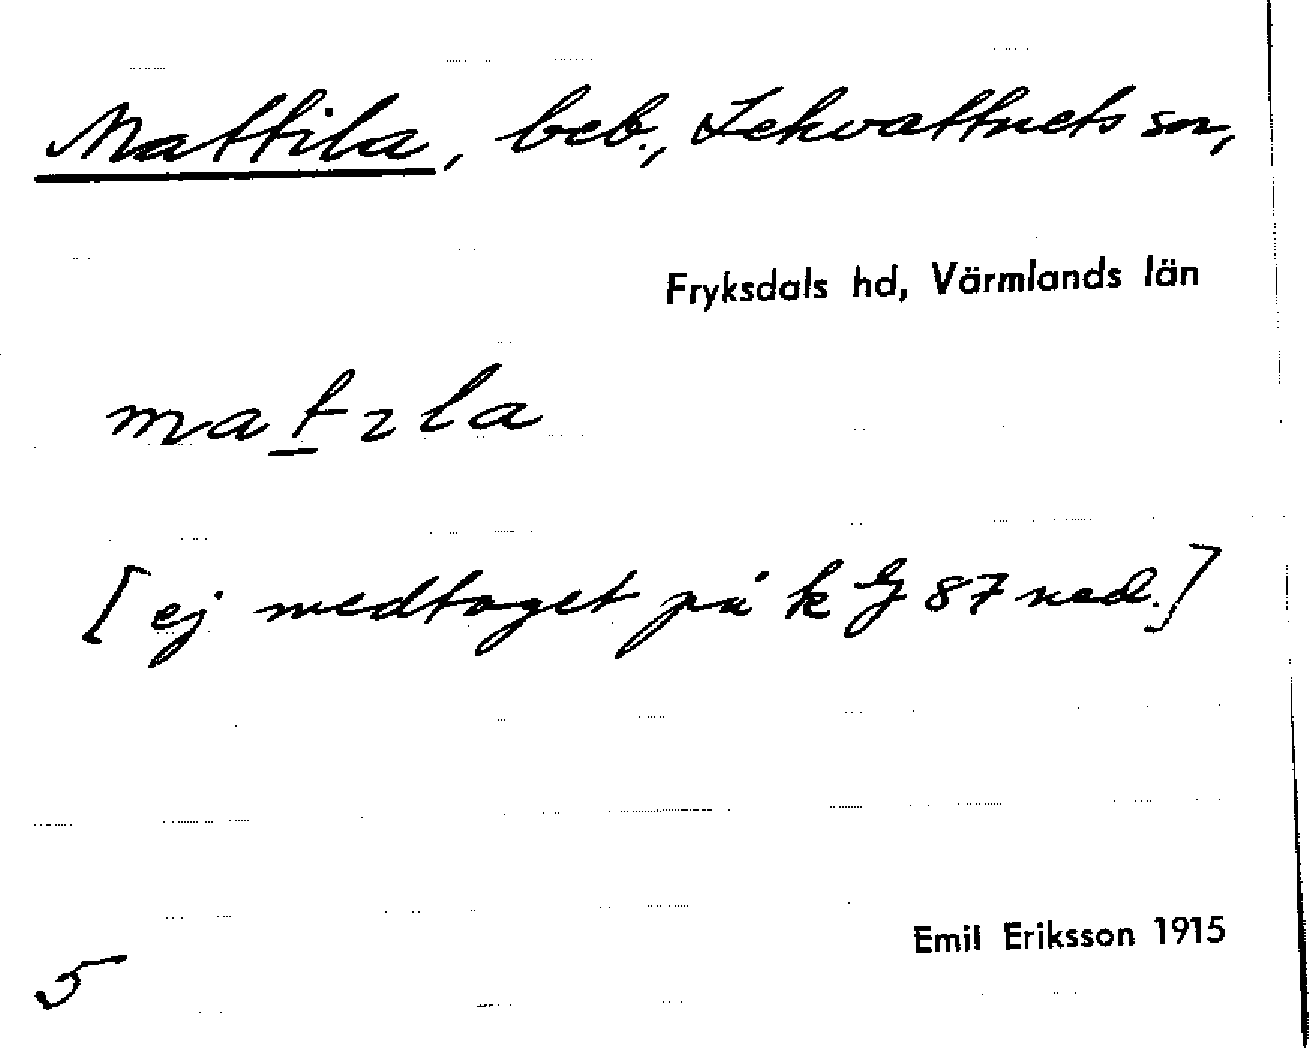 Mattila, beb., Lekvattnets sn,
Fryksdals hd, Värmlands län
matɩla
[ej medtaget på k bl 87 ned.]
Emil Eriksson 1915
5